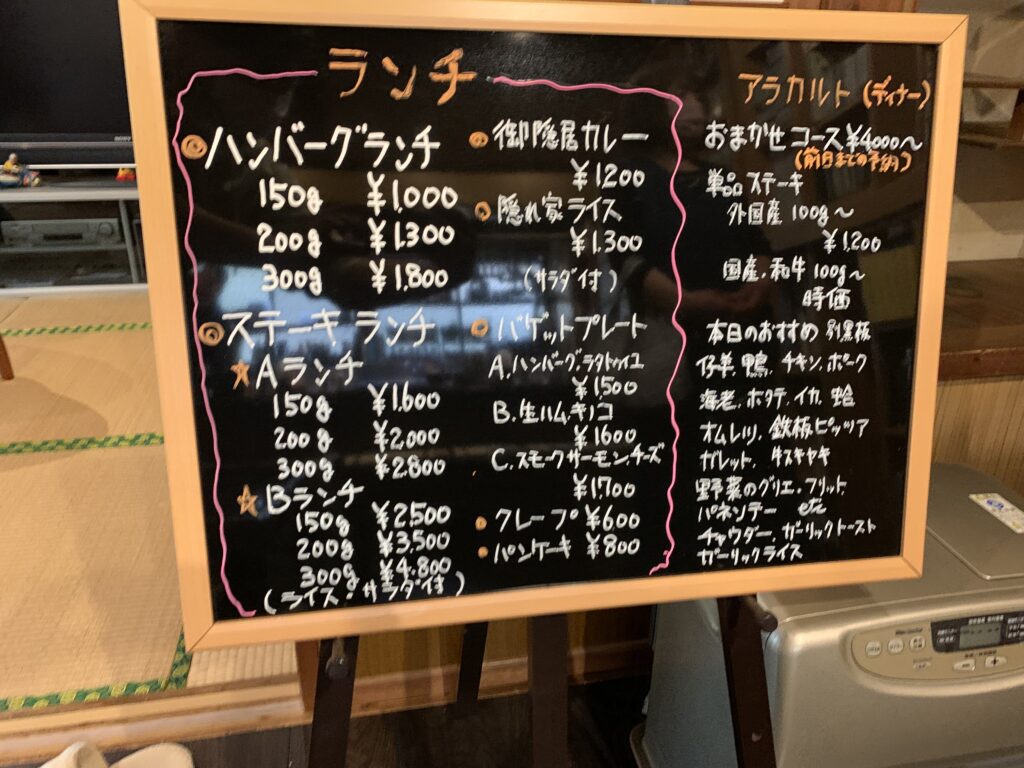 ランチ
◎ハンバーグランチ
150g ¥1,000
200g ¥1,300
300g ¥1,800
◎ステーキランチ
☆Aランチ
150g ¥1,600
200g ¥2,000
300g ¥2,800
☆Bランチ
150g ¥2,500
200g ¥3,500
300g ¥4,800
(ライス・サラダ付)
◎御隠居カレー
¥1200
◎隠れ家ライス
¥1,300
(サラダ付)
◎バゲットプレート
A.ハンバーグ.ラタトゥイユ
¥1,500
B.生ハム.キノコ
¥1600
C.スモークサーモン.チーズ
¥1,700
クレープ ¥600
パンケーキ ¥800
アラカルト(ディナー)
おまかせコース¥4000〜
(前日までの予約)
単品ステーキ
外国産 100g〜
¥1,200
国産.和牛 100g〜
時価
本日のおすすめ 別黒板
仔羊.鴨.チキン.ポーク
海老.ホタテ.イカ.蛤
オムレツ.鉄板ピッツア
ガレット.牛スキヤキ
野菜のグリエ.フリット.
パネソテー etc
チャウダー.ガーリックトースト
ガーリックライス
SONY